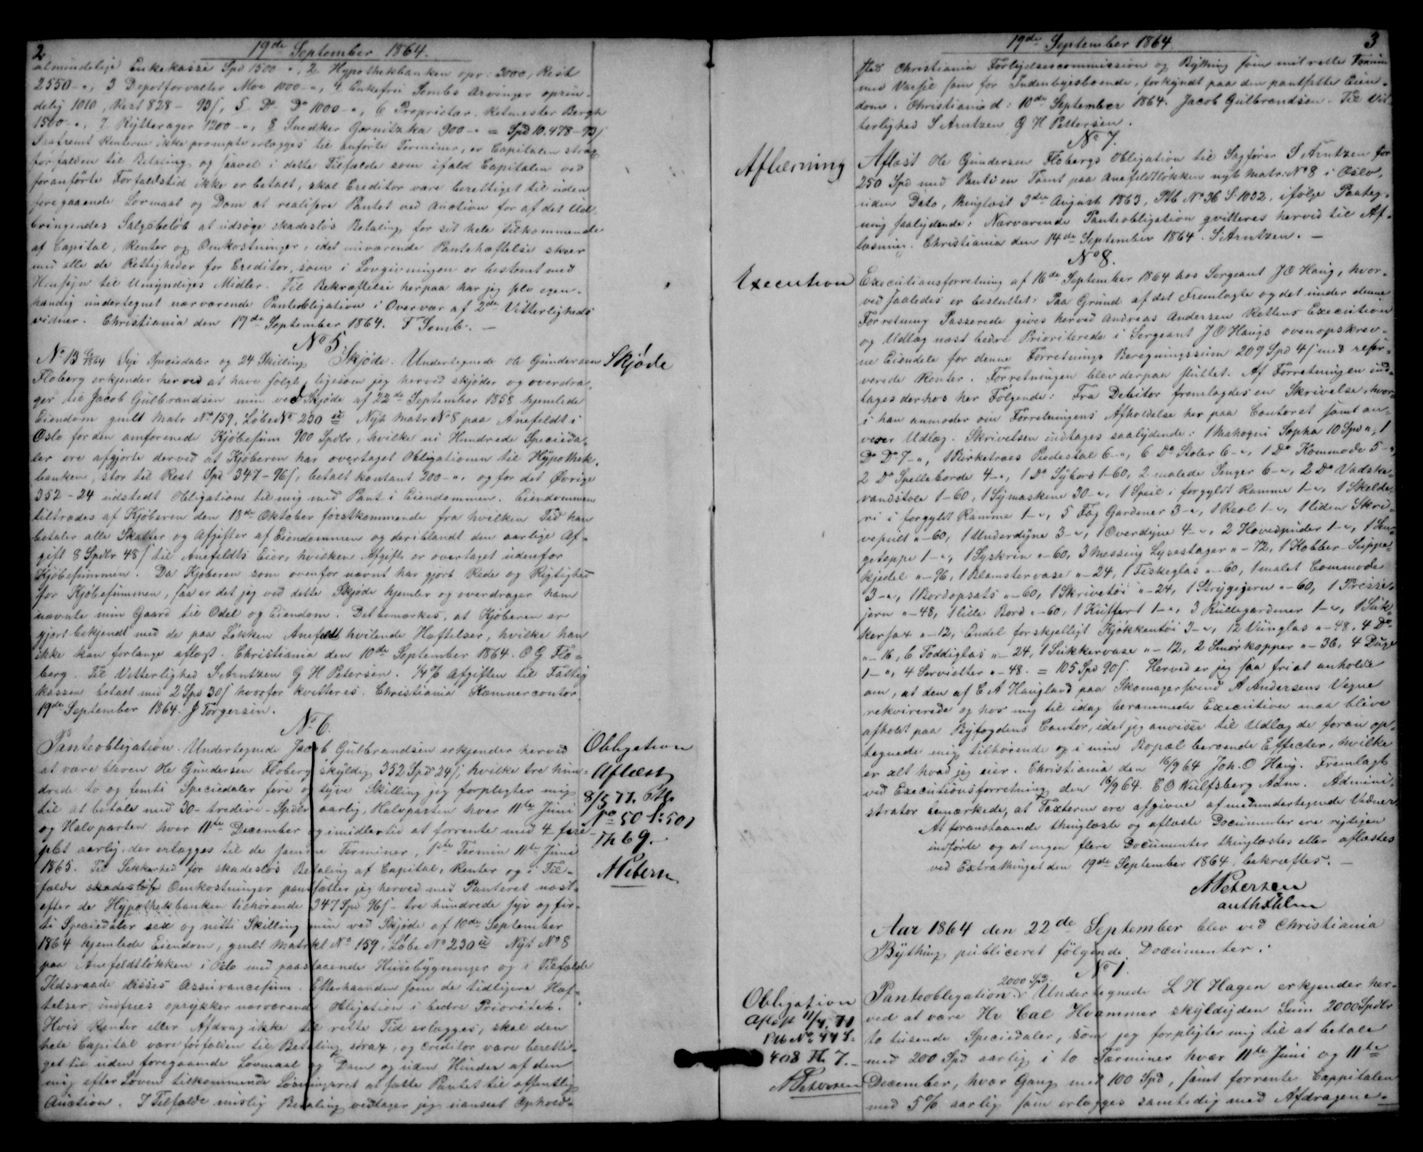 2
19de September 1864.
almindelige Enkekasse Spd 1500 " , 2 Hypothekbanken opr. 3000, Rest
2550 - " , 3 Depotforvalter Moe 1000 - " , 4 Enkefru Tombs Arvinger oprin-
delig 1010, Rest 828 - 93/, 5. Do Do 1000 - " , 6 Proprietar. Retmester Bergh
1500 - " , 7 Rytterager 1200 - " , 8 Snedker Gornitzka 900 - " = Spd 10.478 - 93/
Saafremt Renterne ikke prompte erlægges til anførte Terminer, er Capitalen strax
forfalden til Betaling og saavel i dette Tilfælde som ifald Capitalen ved
foranførte Forfaldstid ikke er betalt, skal Creditor være berettiget til uden
foregaaende Lovmaal og Dom at realisere Pantet ved Auction for af det Ud-
bringendes Salgsbeløb at udsøge skadesløs Betaling for sit hele Tilkommende
af Capital, Renter og Omkostninger, idet nærværende Pantehæftelse skeer
med alle de Rettigheder for Creditor, som i Lovgivningen er bestemt med
Hensyn til Umyndiges Midler. Til Bekræftelse herpaa har jeg selv egen-
hændig undertegnet nærværende Panteobligation i Overvær af 2de Vitterligheds
vidner. Christiania den 17de September 1864. F Tomb. —
No 5.
No 13 64 Syv Speciedaler og 24 Skilling Skjøde. Undertegnede Ole Gundersen
Floberg erkjender herved at have solgt, ligesom jeg herved skjøder og overdra-
ger til Jacob Gulbrandsen min ved Skjøde af 22de September 1858 hjemlede
Eiendom gmlt Matr No 159, Løbe No 230 Nyt Matr No 8 paa Anefeldt i
Oslo for den omforenede Kjøbesum 900 Spdlr, hvilke ni Hundrede Speciesda-
ler ere afgjorte derved at Kjøberen har overtaget Obligationen til Hypothek-
banken, stor til Rest Spd 347 - 96/, betalt kontant 200 - " , og for det Øvrige
352 - 24 udstedt Obligation til mig med Pant i Eiendommen. Eiendommen
tiltrædes af Kjøberen den 18de Oktober førstkommende fra hvilken Tid han
betaler alle Skatter og Afgifter af Eiendommen og deriblandt den aarlige Af-
gift 8 Spdlr 48/ til Anefeldts Eier, hvilken Afgift er overtaget udenfor
Kjøbesummen. Da Kjøberen som ovenfor nævnt har gjort Rede og Rigtighed
for Kjøbesummen, saa er det jeg ved dette Skjøde hjemler og overdrager ham
nævnte min Gaard til Odel og Eiendom. Det bemærkes, at Kjøberen er
gjort bekjendt med de paa Løkken Anefeldt hvilende Hæftelser, hvilke han
ikke kan forlange aflæst. Christiania den 10de September 1864. O G Flo-
berg. Til Vitterlighed S Arntzen G H Petersen. 1/4 % Afgiften til Fattig
kassen betalt med 2 Spd 30/ hvorfor kvitteres. Christiania Kæmnercontor
19de September 1864. J Torgersen.
No 6.
Panteobligation. Undertegnede Jacob Gulbrandsen erkjender herved
at være bleven Ole Gundersen Floberg skyldig 352 Spd 24/, hvilke tre hun-
drede to og femti Speciedaler fire og tyve Skilling jeg forpligter mig
til at betale med 30 - tredive - Spdlr aarlig, Halvparten hver 11te Juni
og Halvparten hver 11te December og imidlertid at forrente med 4 fire
pCt aarlig, der erlægges til de samme Terminer, 1ste Termin 11te Juni
1865. Til Sikkerhed for skadesløs Betaling af Capital, Renter og i Til-
fælde skadesløse Omkostninger pantsætter jeg herved med Panteret næst-
efter de Hypothekbanken tilhørende 347 Spd 96/ - tre hundrede syv og fir-
ti Speciedaler sex og nitti Skilling min ved Skjøde af 10de September
1864 hjemlede Eiendom, gmlt Matrkl No 159, Løbe No 230 Nyt No 8
paa Anefeldtløkken i Oslo med paastaaende Huusbygninger og i Tilfælde
Ildsvaade disses Assurancesum. Efterhaanden som de tidligere Hæf-
telser indfries oprykker nærværende Obligation i bedre Prioritet.
Hvis Renter eller Afdrag ikke til rette Tid erlægges, skal den
hele Capital være forfalden til Betaling strax, og Creditor være beretti-
get til uden foregaaende Lovmaal og Dom og uden Hinder af den
mig efter Loven tilkommende Løsningsret at sætte Pantet til offentlig
Auction. I Tilfælde mislig Betaling vedtager jeg uanseet Ophold-
Skjøde
Obligation
Aflæst
8/5 77. Ptb.
No 50 S. 501
Th 69.
APetersen
19de September 1864
3
sted Christiania Forligelsescommission og Bything som mit rette Forum
med Varsel som for Indenbyesboende, forkyndt paa den pantsatte Eien-
dom. Christiania d: 10de September 1864. Jacob Gulbrandsen. Til Vit-
terlighed S Arntzen G H Pettersen.
No 7.
Aflæst Ole Gundersen Flobergs Obligation til Sagfører S Arntzen for
250 Spd med Pant i en Tomt paa Anefeldtløkken nyt Matr: No 8 i Oslo,
uden Dato, thinglæst 3die August 1863, Ptb No 36 S 1032, ifølge Paateg-
ning saalydende: Nærværende Panteobligation qvitteres herved til Af-
læsning. Christiania den 14de September 1864. S Arntzen. —
No 8.
Executionsforretning af 16de September 1864 hos Sergeant J O Haug, hvor-
ved saaledes er besluttet: Paa Grund af det Fremlagte og det under denne
Forretning Passerede gives herved Andreas Andersen Rettens Execution
og Udlæg næst bedre Prioriterede i Sergeant J O Haugs ovenopskrev-
ne Eiendele for denne Forretnings Bevegningssum 209 Spd 4/ med refer-
verede Renter. Forretningen blev derpaa sluttet. Af Forretningen ind-
tages derhos her Følgende: Fra Debitor fremlagdes en Skrivelse, hvor-
i han anmoder om Forretningens Afholdelse her paa Contoret samt an-
viser Udlæg. Skrivelsen indtages saalydende: 1 Mahogni Sopha 10 Spd ", 1
Do Do 7 - " , 1 Birketræes Piedestal 6 - " , 6 Do Stoler 6 - " , 1 Do Kommode 5 - "
2 Do Spelleborde 4 - " , 1 Do Sybord 1 - 60, 2 malede Senger 6 - " , 2 Do Vadske-
vandstole 1 - 60, 1 Symaskine 30 - " , 1 Speil i forgyldt Ramme 1 - " , 1 Skilde-
ri i forgyldt Ramme 1 - " , 5 Fag Gardiner 3 - " , 1 Reol 1 - " , 1 liden Skri-
vepult " - 60, 1 Underdyne 3 - " , 1 Overdyne 4 - " , 2 Hovedpuder 1 - " , 1 Sen-
geteppe 1 - " , 1 Syskrin " - 60, 3 Messing Lysestager " - 72, 1 Kobber Suppe-
kjedel " - 96, 1 Blomstervase " - 24, 1 Fiskeglas " - 60, 1 malet Commode
3 - " , 1 Bordopsats " - 60, 1 Skrivetøi " - 24, 1 Strygejern " - 60, 1 Presse-
jern " - 48, 1 lille Bord " - 60, 1 Kuffert 1 - " , 3 Rullegardiner 1 - " , 1 Suk-
kersax " - 12, Endel forskjelligt Kjøkkentøi 3 - " , 12 Viinglas " - 48. 4 Do
" - 16, 6 Toddiglas " - 24, 1 Sukkervase " - 12, 2 Smørkopper " - 36, 4 Duge
1 - " , 4 Servietter " - 48. = 105 Spd 90/. Herved er jeg saa fri at anholde
om, at den af C A Haugland paa Skomagersvend A Andersens Vegne
rekvirerede og hos mig til idag berammede Execution maa blive
afholdt paa Byfogdens Contor, idet jeg anviser til Udlæg de foran op-
tegnede mig tilhørende og i min Bopæl beroende Effecter, hvilke
er alt hvad jeg eier. Christiania den 16/9 64 Joh. O Haug. Fremlagt
ved Executionsforretning den 16/9 64. E O Wulfsberg Adm. Admini-
strator bemærkede, at Taxterne ere afgivne af medundertegnede Vidner.
At foranstaaende thinglæste og aflæste Documenter ere rigtigen
indførte og at ingen flere Documenter thinglæstes eller aflæstes
ved Extrathinget den 19de September 1864, bekræftes. —
APetersen
auth
Aar 1864 den 22de September blev ved Christiania
Bything publiceret følgende Documenter.:
No 1.
2000 Spd.
Panteobligation. Undertegnede L H Hagen erkjender her-
ved at være Hr Cal Hvammer skyldig den Sum 2000 Spdlr
to tusende Speciedaler, som jeg forpligter mig til at betale
med 200 Spd aarlig i to Terminer hver 11te Juni og 11te
December, hver Gang med 100 Spd, samt forrente Cappitalen
med 5% aarlig som erlægges samtidig med Afdragene.
Aflæsning
Execution
Obligation
Aflæst 11/4 71
Ptb No 44 S.
408 Th 7.
APetersen